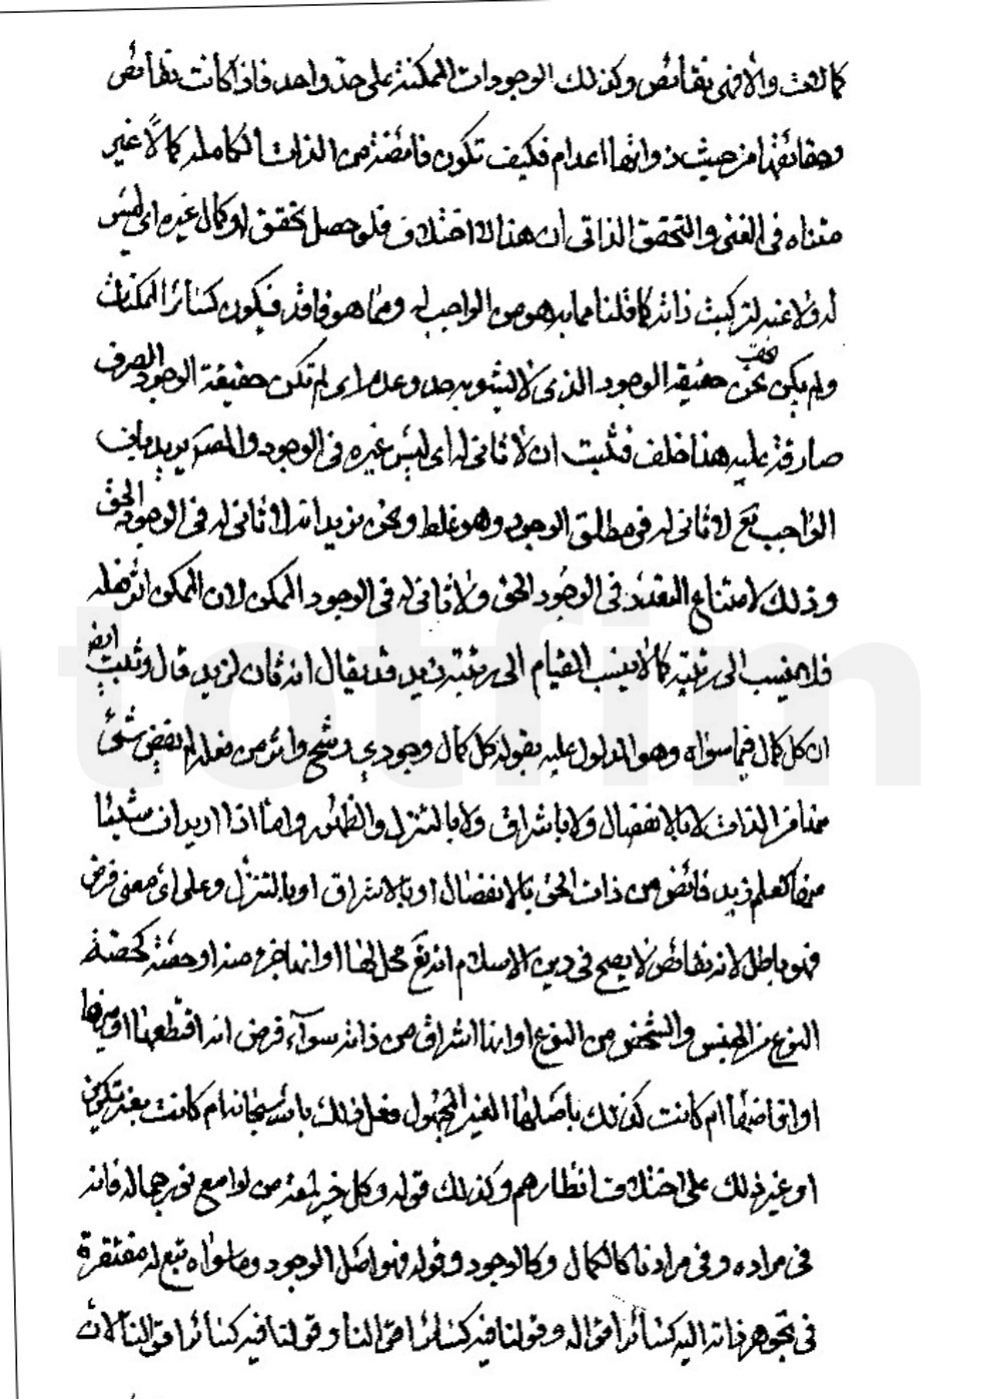 كمالات والافهى نقائص وكذلك الوجودات الممكنة على حدّ واحد فاذا كانت نقائص
وحقائقها من حيث ذواتها اعدام فكيف تكون فائضة من الذات الكاملة كمالًا غير
متناه فى الغنى والتحقق الذاتى ان هذا لاختلاف فلو حصل تحقق او كمال غيره اى ليس
له ولا عنه لتركبت ذاته كما قلنا مما به هو من الواجب له ومما هو فاقد فيكون كسائر الممكنات
ولم يكن محض حقيقة الوجود الذى لا يشوبه حد وعدم اى لم تكن حقيقة الوجود الصرف
صادقة عليه هذا خلف فثبت ان لا ثانى له اى ليس غيره فى الوجود والمصنف يريد بان
الواجب تع لا ثانى له فى مطلق الوجود وهو غلط ونحن نريد انه لا ثانى له فى الوجود الحق
وذلك لامتناع التعدد فى الوجود الحق ولا ثانى له فى الوجود الممكن لان الممكن اثر فعله
فلا ينسب الى رتبته كما لا ينسب القيام الى رتبة زيد فقد يقال انه ثان لزيد قال وثبت ايضا
ان كل كمال فيما سواه وهو المدلول عليه بقوله كل كمال وجودي رشح واثر من فعله لم يفض شئ
منها من الذات لا بالانفصال ولا باشراق ولا بالتنزل والظهور واما اذا اريد ان شيئا
منها كعلم زيد فائض من ذات الحق بالانفصال او بالاشراق او بالتنزل وعلى اى معنى فرض
فهو باطل لانه نقائص لا يصح فى دين الاسلام انه تع محل لها او انها جزء منه او حصّة كحصّة
النوع من الجنس والشخص من النوع او انها اشراق من ذاته سوآء فرض انه اقتطعها او ميزها
او افاضها ام كانت كذلك باصلها الغير المجهول فعل ذلك بها سبحانه ام كانت بغير تكوين
او غير ذلك على اختلاف انظارهم وكذلك قوله وكل خير لمعة من لوامع نور جماله فانه
فى مراده وفى مرادنا كالكمال وكالوجود وقوله فهو اصل الوجود وما سواه تبع له مفتقرة
فى تجوهر ذاته اليه كسائر اقواله وقولنا فيه كسائر اقوالنا وقولنا فيه كسائر اقوالنا لان